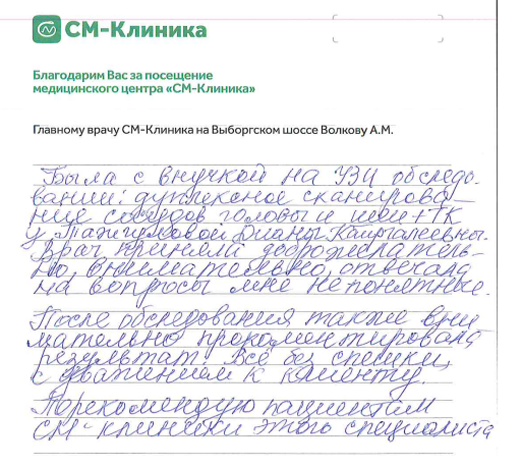 СМ-Клиника
Благодарим Вас за посещение
медицинского центра «СМ-Клиника»
Главному врачу СМ-Клиника на Выборгском шоссе Волкову А.М.
Была с внучкой на УЗИ обследо-
вании: дуплексное сканирова-
ние сосудов головы и шеи + ТК
у Дианы
Врач приняла доброжелатель-
но, внимательно, отвечала
на вопросы мне непонятные.
После обследования также вни
мательно прокоментировала
результат. Всё без спешки,
с уважением к клиенту.
Порекомендую пациентам
СМ-клиники этого специалиста